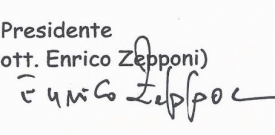 Presidente
ott. Enrico Zepponi)
Enrico Zeppo